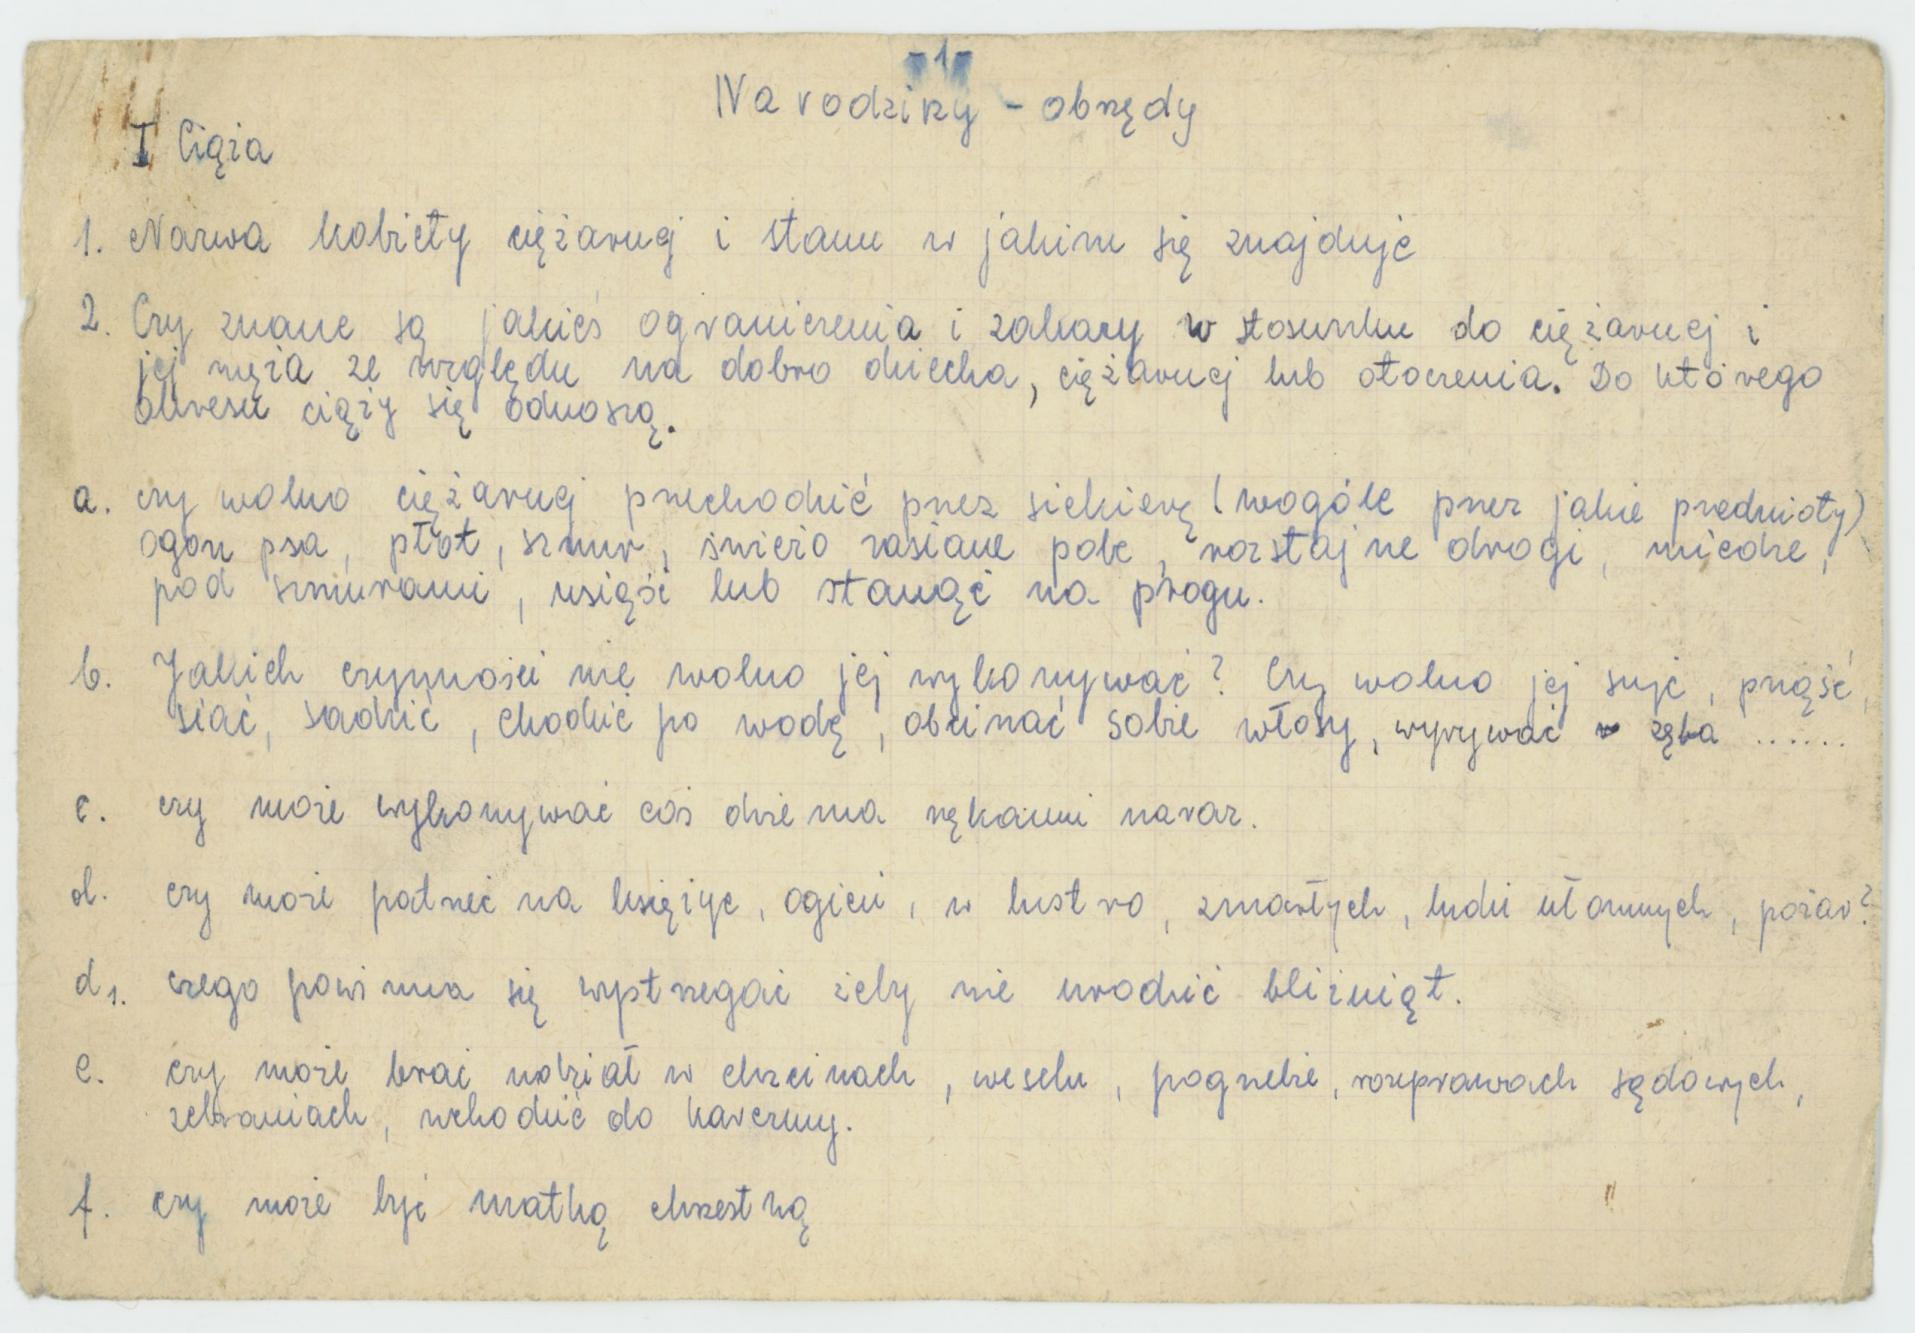 -1-
Narodziny - obrzędy
I Ciąża
1. Nazwa kobiety ciężarnej i stanu w jakim się znajduje
2. Czy znane są jakieś ograniczenia i zakazy w stosunku do ciężarnej i
jej męża ze względu na dobro dziecka, ciężarnej lub otoczenia. Do którego
okresu ciąży się odnoszą.
a. czy wolno ciężarnej przechodzić przez siekierę (wogóle przez jakie przedmioty)
ogon psa, płot, sznur, świeżo zasiane pole, rozstajne drogi, miedze,
pod sznurami, usiąść lub stanąć na progu.
b. Jakich czynności nie wolno jej wykonywać? Czy wolno jej szyć, prząść,
siać, sadzić, chodzić po wodę, obcinać sobie włosy, wyrywać zęba ......
c. czy może wykonywać coś dwiema rękami naraz.
d. czy może patrzeć na księżyc, ogień, w lustro, zmarłych, ludzi ułomnych, pożar?
d1. czego powinna się wystrzegać żeby nie urodzić bliźniąt.
e. czy może brać udział w chrzcinach, weselu, pogrzebie, rozprawach sądowych,
zebraniach, wchodzić do karczmy.
f. czy może być matką chrzestną